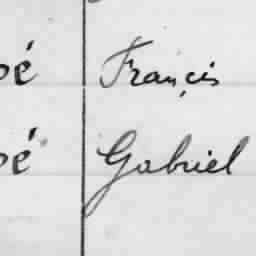 pé Françis
pé Gabriel